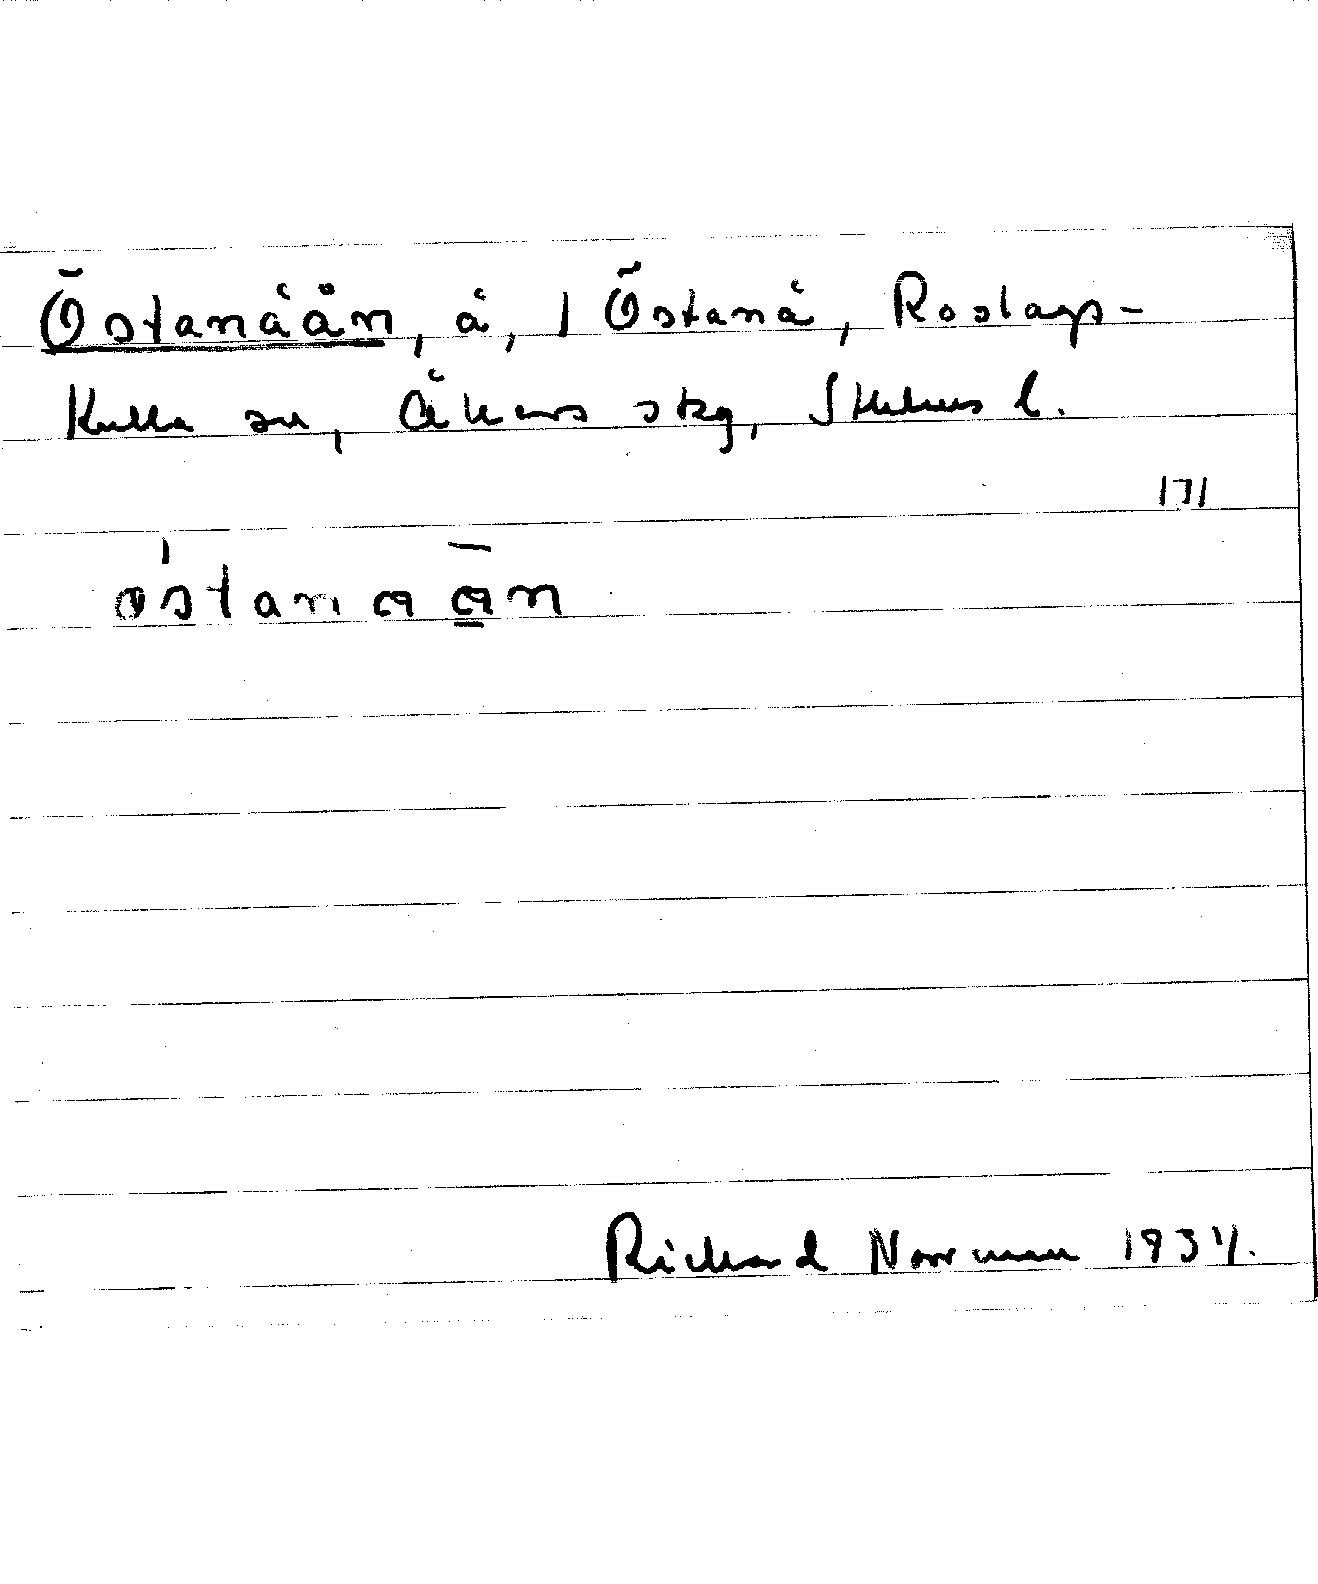 Östanåån, å, 1 Östanå, Roslags-
Kulla sn, Åkers skg, Sthlms l.
171
östanaan
Richard Norrman 1934.